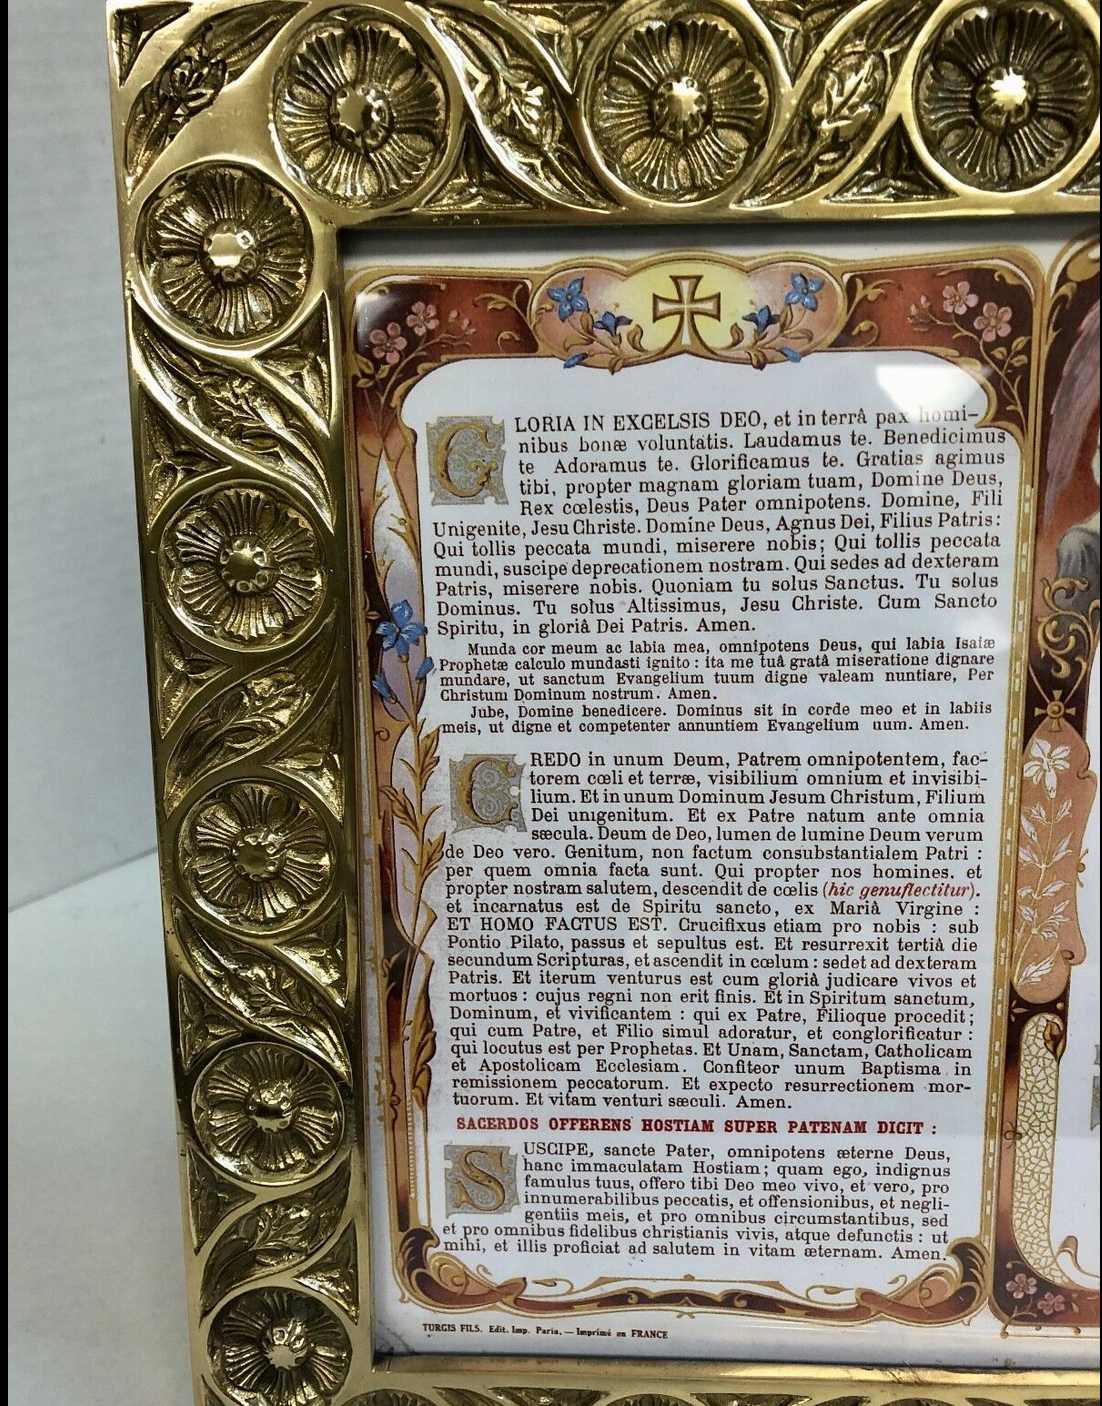 GLORIA IN EXCELSIS DEO, et in terrâ pax homi-
nibus bonæ voluntatis. Laudamus te. Benedicimus
te Adoramus te. Glorificamus te. Gratias agimus
tibi, propter magnam gloriam tuam, Domine Deus,
Rex cœlestis, Deus Pater omnipotens. Domine, Fili
Unigenite, Jesu Christe. Domine Deus, Agnus Dei, Filius Patris:
Qui tollis peccata mundi, miserere nobis; Qui tollis peccata
mundi, suscipe deprecationem nostram. Qui sedes ad dexteram
Patris, miserere nobis. Quoniam tu solus Sanctus. Tu solus
Dominus. Tu solus Altissimus, Jesu Christe. Cum Sancto
Spiritu, in gloriâ Dei Patris. Amen.
Munda cor meum ac labia mea, omnipotens Deus, qui labia Isaiæ
Prophetæ calculo mundasti ignito : ita me tuâ gratâ miseratione dignare
mundare, ut sanctum Evangelium tuum digne valeam nuntiare, Per
Christum Dominum nostrum. Amen.
Jube, Domine benedicere. Dominus sit in corde meo et in labiis
meis, ut digne et competenter annuntiem Evangelium uum. Amen.
CREDO in unum Deum, Patrem omnipotentem, fac-
torem cœli et terræ, visibilium omnium et invisibi-
lium. Et in unum Dominum Jesum Christum, Filium
Dei unigenitum. Et ex Patre natum ante omnia
sæcula. Deum de Deo, lumen de lumine Deum verum
de Deo vero. Genitum, non factum consubstantialem Patri :
per quem omnia facta sunt. Qui propter nos homines. et
propter nostram salutem, descendit de cœlis (hic genuflectitur).
et incarnatus est de Spiritu sancto, ex Mariâ Virgine :
ET HOMO FACTUS EST. Crucifixus etiam pro nobis : sub
Pontio Pilato, passus et sepultus est. Et resurrexit tertiâ die
secundum Scripturas, et ascendit in cœlum : sedet ad dexteram
Patris. Et iterum venturus est cum gloriâ judicare vivos et
mortuos : cujus regni non erit finis. Et in Spiritum sanctum,
Dominum, et vivificantem : qui ex Patre, Filioque procedit;
qui cum Patre, et Filio simul adoratur, et conglorificatur :
qui locutus est per Prophetas. Et Unam, Sanctam, Catholicam
et Apostolicam Ecclesiam. Confiteor unum Baptisma in
remissionem peccatorum. Et expecto resurrectionem mor-
tuorum. Et vitam venturi sæculi. Amen.
SACERDOS OFFERENS HOSTIAM SUPER PATENAM DICIT :
SUSCIPE, sancte Pater, omnipotens æterne Deus,
hanc immaculatam Hostiam; quam ego, indignus
famulus tuus, offero tibi Deo meo vivo, et vero, pro
innumerabilibus peccatis, et offensionibus, et negli-
gentiis meis, et pro omnibus circumstantibus, sed
et pro omnibus fidelibus christianis vivis, atque defunctis : ut
mihi, et illis proficiat ad salutem in vitam æternam. Amen.
TURGIS FILS. Edit. Imp. Paris. — Imprimé en FRANCE